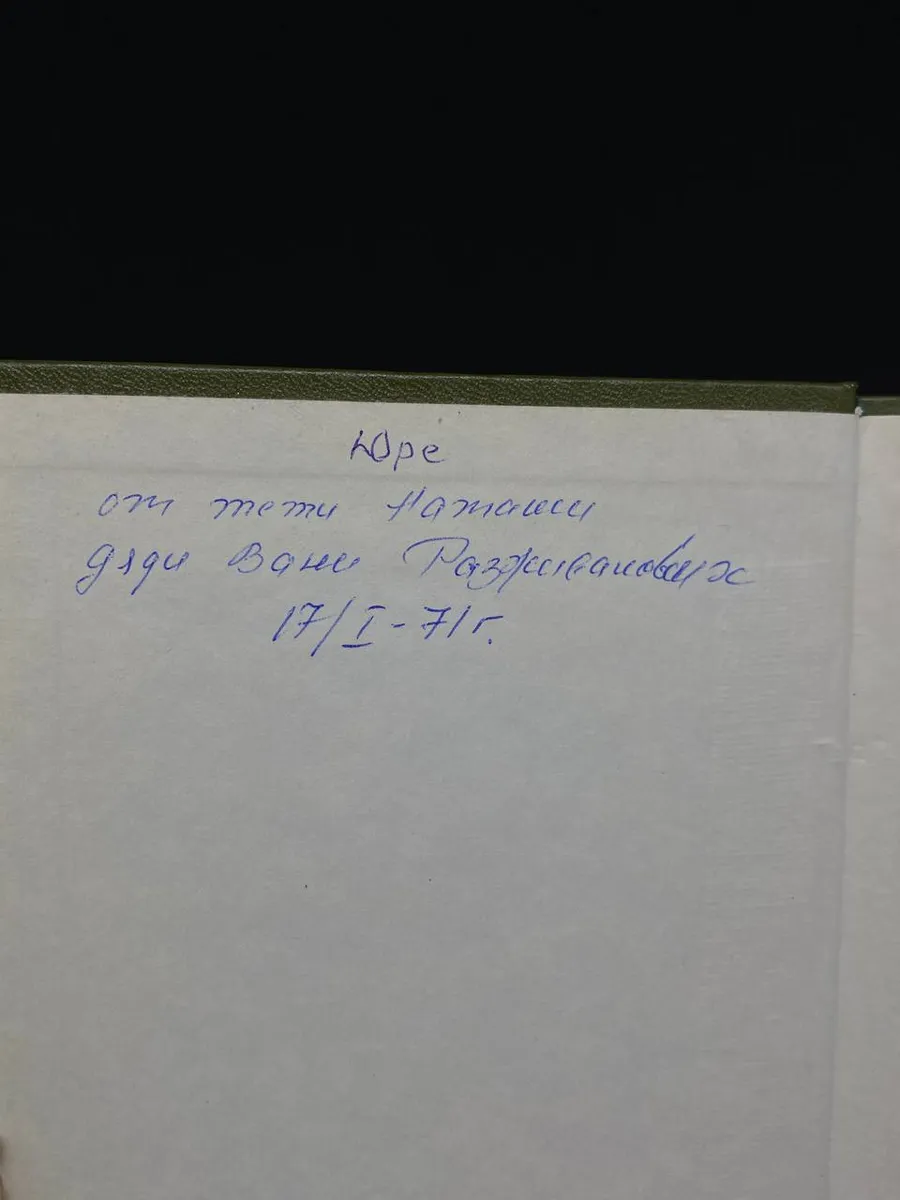 Юре
от тети Наташи
дяди Вани Разживановых
17/I-71г.